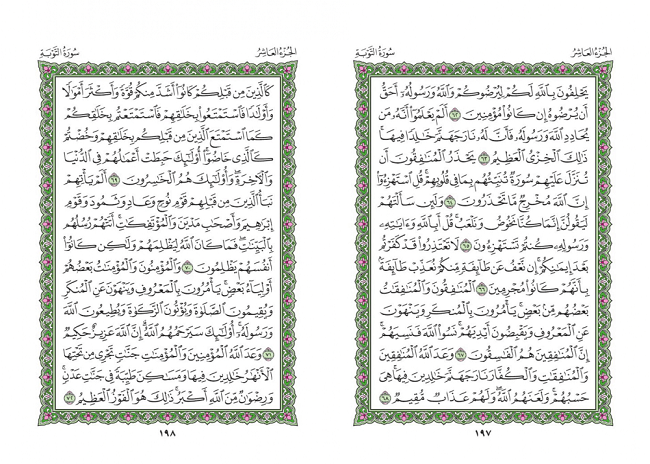 الجزء العاشر
سورة التوبة
يَحۡلِفُونَ بِٱللَّهِ لَكُمۡ لِيُرۡضُوكُمۡ وَٱللَّهُ وَرَسُولُهُۥٓ أَحَقُّ
أَن يُرۡضُوهُ إِن كَانُواْ مُؤۡمِنِينَ ٦٢ أَلَمۡ يَعۡلَمُوٓاْ أَنَّهُۥ مَن
يُحَادِدِ ٱللَّهَ وَرَسُولَهُۥ فَأَنَّ لَهُۥ نَارَ جَهَنَّمَ خَٰلِدٗا فِيهَاۚ
ذَٰلِكَ ٱلۡخِزۡيُ ٱلۡعَظِيمُ ٦٣ يَحۡذَرُ ٱلۡمُنَٰفِقُونَ أَن
تُنَزَّلَ عَلَيۡهِمۡ سُورَةٞ تُنَبِّئُهُم بِمَا فِي قُلُوبِهِمۡۚ قُلِ ٱسۡتَهۡزِءُوٓاْ
إِنَّ ٱللَّهَ مُخۡرِجٞ مَّا تَحۡذَرُونَ ٦٤ وَلَئِن سَأَلۡتَهُمۡ
لَيَقُولُنَّ إِنَّمَا كُنَّا نَخُوضُ وَنَلۡعَبُۚ قُلۡ أَبِٱللَّهِ وَءَايَٰتِهِۦ
وَرَسُولِهِۦ كُنتُمۡ تَسۡتَهۡزِءُونَ ٦٥ لَا تَعۡتَذِرُواْ قَدۡ كَفَرۡتُم
بَعۡدَ إِيمَٰنِكُمۡۚ إِن نَّعۡفُ عَن طَآئِفَةٖ مِّنكُمۡ نُعَذِّبۡ طَآئِفَةَۢ
بِأَنَّهُمۡ كَانُواْ مُجۡرِمِينَ ٦٦ ٱلۡمُنَٰفِقُونَ وَٱلۡمُنَٰفِقَٰتُ
بَعۡضُهُم مِّنۢ بَعۡضٖۚ يَأۡمُرُونَ بِٱلۡمُنكَرِ وَيَنۡهَوۡنَ
عَنِ ٱلۡمَعۡرُوفِ وَيَقۡبِضُونَ أَيۡدِيَهُمۡۚ نَسُواْ ٱللَّهَ فَنَسِيَهُمۡۚ
إِنَّ ٱلۡمُنَٰفِقِينَ هُمُ ٱلۡفَٰسِقُونَ ٦٧ وَعَدَ ٱللَّهُ ٱلۡمُنَٰفِقِينَ
وَٱلۡمُنَٰفِقَٰتِ وَٱلۡكُفَّارَ نَارَ جَهَنَّمَ خَٰلِدِينَ فِيهَاۚ هِيَ
حَسۡبُهُمۡۚ وَلَعَنَهُمُ ٱللَّهُۖ وَلَهُمۡ عَذَابٞ مُّقِيمٞ ٦٨
١٩٧
الجزء العاشر
سورة التوبة
كَٱلَّذِينَ مِن قَبۡلِكُمۡ كَانُوٓاْ أَشَدَّ مِنكُمۡ قُوَّةٗ وَأَكۡثَرَ أَمۡوَٰلٗا
وَأَوۡلَٰدٗا فَٱسۡتَمۡتَعُواْ بِخَلَٰقِهِمۡ فَٱسۡتَمۡتَعۡتُم بِخَلَٰقِكُمۡ
كَمَا ٱسۡتَمۡتَعَ ٱلَّذِينَ مِن قَبۡلِكُم بِخَلَٰقِهِمۡ وَخُضۡتُمۡ
كَٱلَّذِي خَاضُوٓاْۚ أُوْلَٰٓئِكَ حَبِطَتۡ أَعۡمَٰلُهُمۡ فِي ٱلدُّنۡيَا
وَٱلۡأٓخِرَةِۖ وَأُوْلَٰٓئِكَ هُمُ ٱلۡخَٰسِرُونَ ٦٩ أَلَمۡ يَأۡتِهِمۡ
نَبَأُ ٱلَّذِينَ مِن قَبۡلِهِمۡ قَوۡمِ نُوحٖ وَعَادٖ وَثَمُودَ وَقَوۡمِ
إِبۡرَٰهِيمَ وَأَصۡحَٰبِ مَدۡيَنَ وَٱلۡمُؤۡتَفِكَٰتِۚ أَتَتۡهُمۡ رُسُلُهُم
بِٱلۡبَيِّنَٰتِۖ فَمَا كَانَ ٱللَّهُ لِيَظۡلِمَهُمۡ وَلَٰكِن كَانُوٓاْ
أَنفُسَهُمۡ يَظۡلِمُونَ ٧٠ وَٱلۡمُؤۡمِنُونَ وَٱلۡمُؤۡمِنَٰتُ بَعۡضُهُمۡ
أَوۡلِيَآءُ بَعۡضٖۚ يَأۡمُرُونَ بِٱلۡمَعۡرُوفِ وَيَنۡهَوۡنَ عَنِ ٱلۡمُنكَرِ
وَيُقِيمُونَ ٱلصَّلَوٰةَ وَيُؤۡتُونَ ٱلزَّكَوٰةَ وَيُطِيعُونَ ٱللَّهَ
وَرَسُولَهُۥٓۚ أُوْلَٰٓئِكَ سَيَرۡحَمُهُمُ ٱللَّهُۗ إِنَّ ٱللَّهَ عَزِيزٌ حَكِيمٞ
٧١ وَعَدَ ٱللَّهُ ٱلۡمُؤۡمِنِينَ وَٱلۡمُؤۡمِنَٰتِ جَنَّٰتٖ تَجۡرِي مِن تَحۡتِهَا
ٱلۡأَنۡهَٰرُ خَٰلِدِينَ فِيهَا وَمَسَٰكِنَ طَيِّبَةٗ فِي جَنَّٰتِ عَدۡنٖۚ
وَرِضۡوَٰنٞ مِّنَ ٱللَّهِ أَكۡبَرُۚ ذَٰلِكَ هُوَ ٱلۡفَوۡزُ ٱلۡعَظِيمُ ٧٢
١٩٨